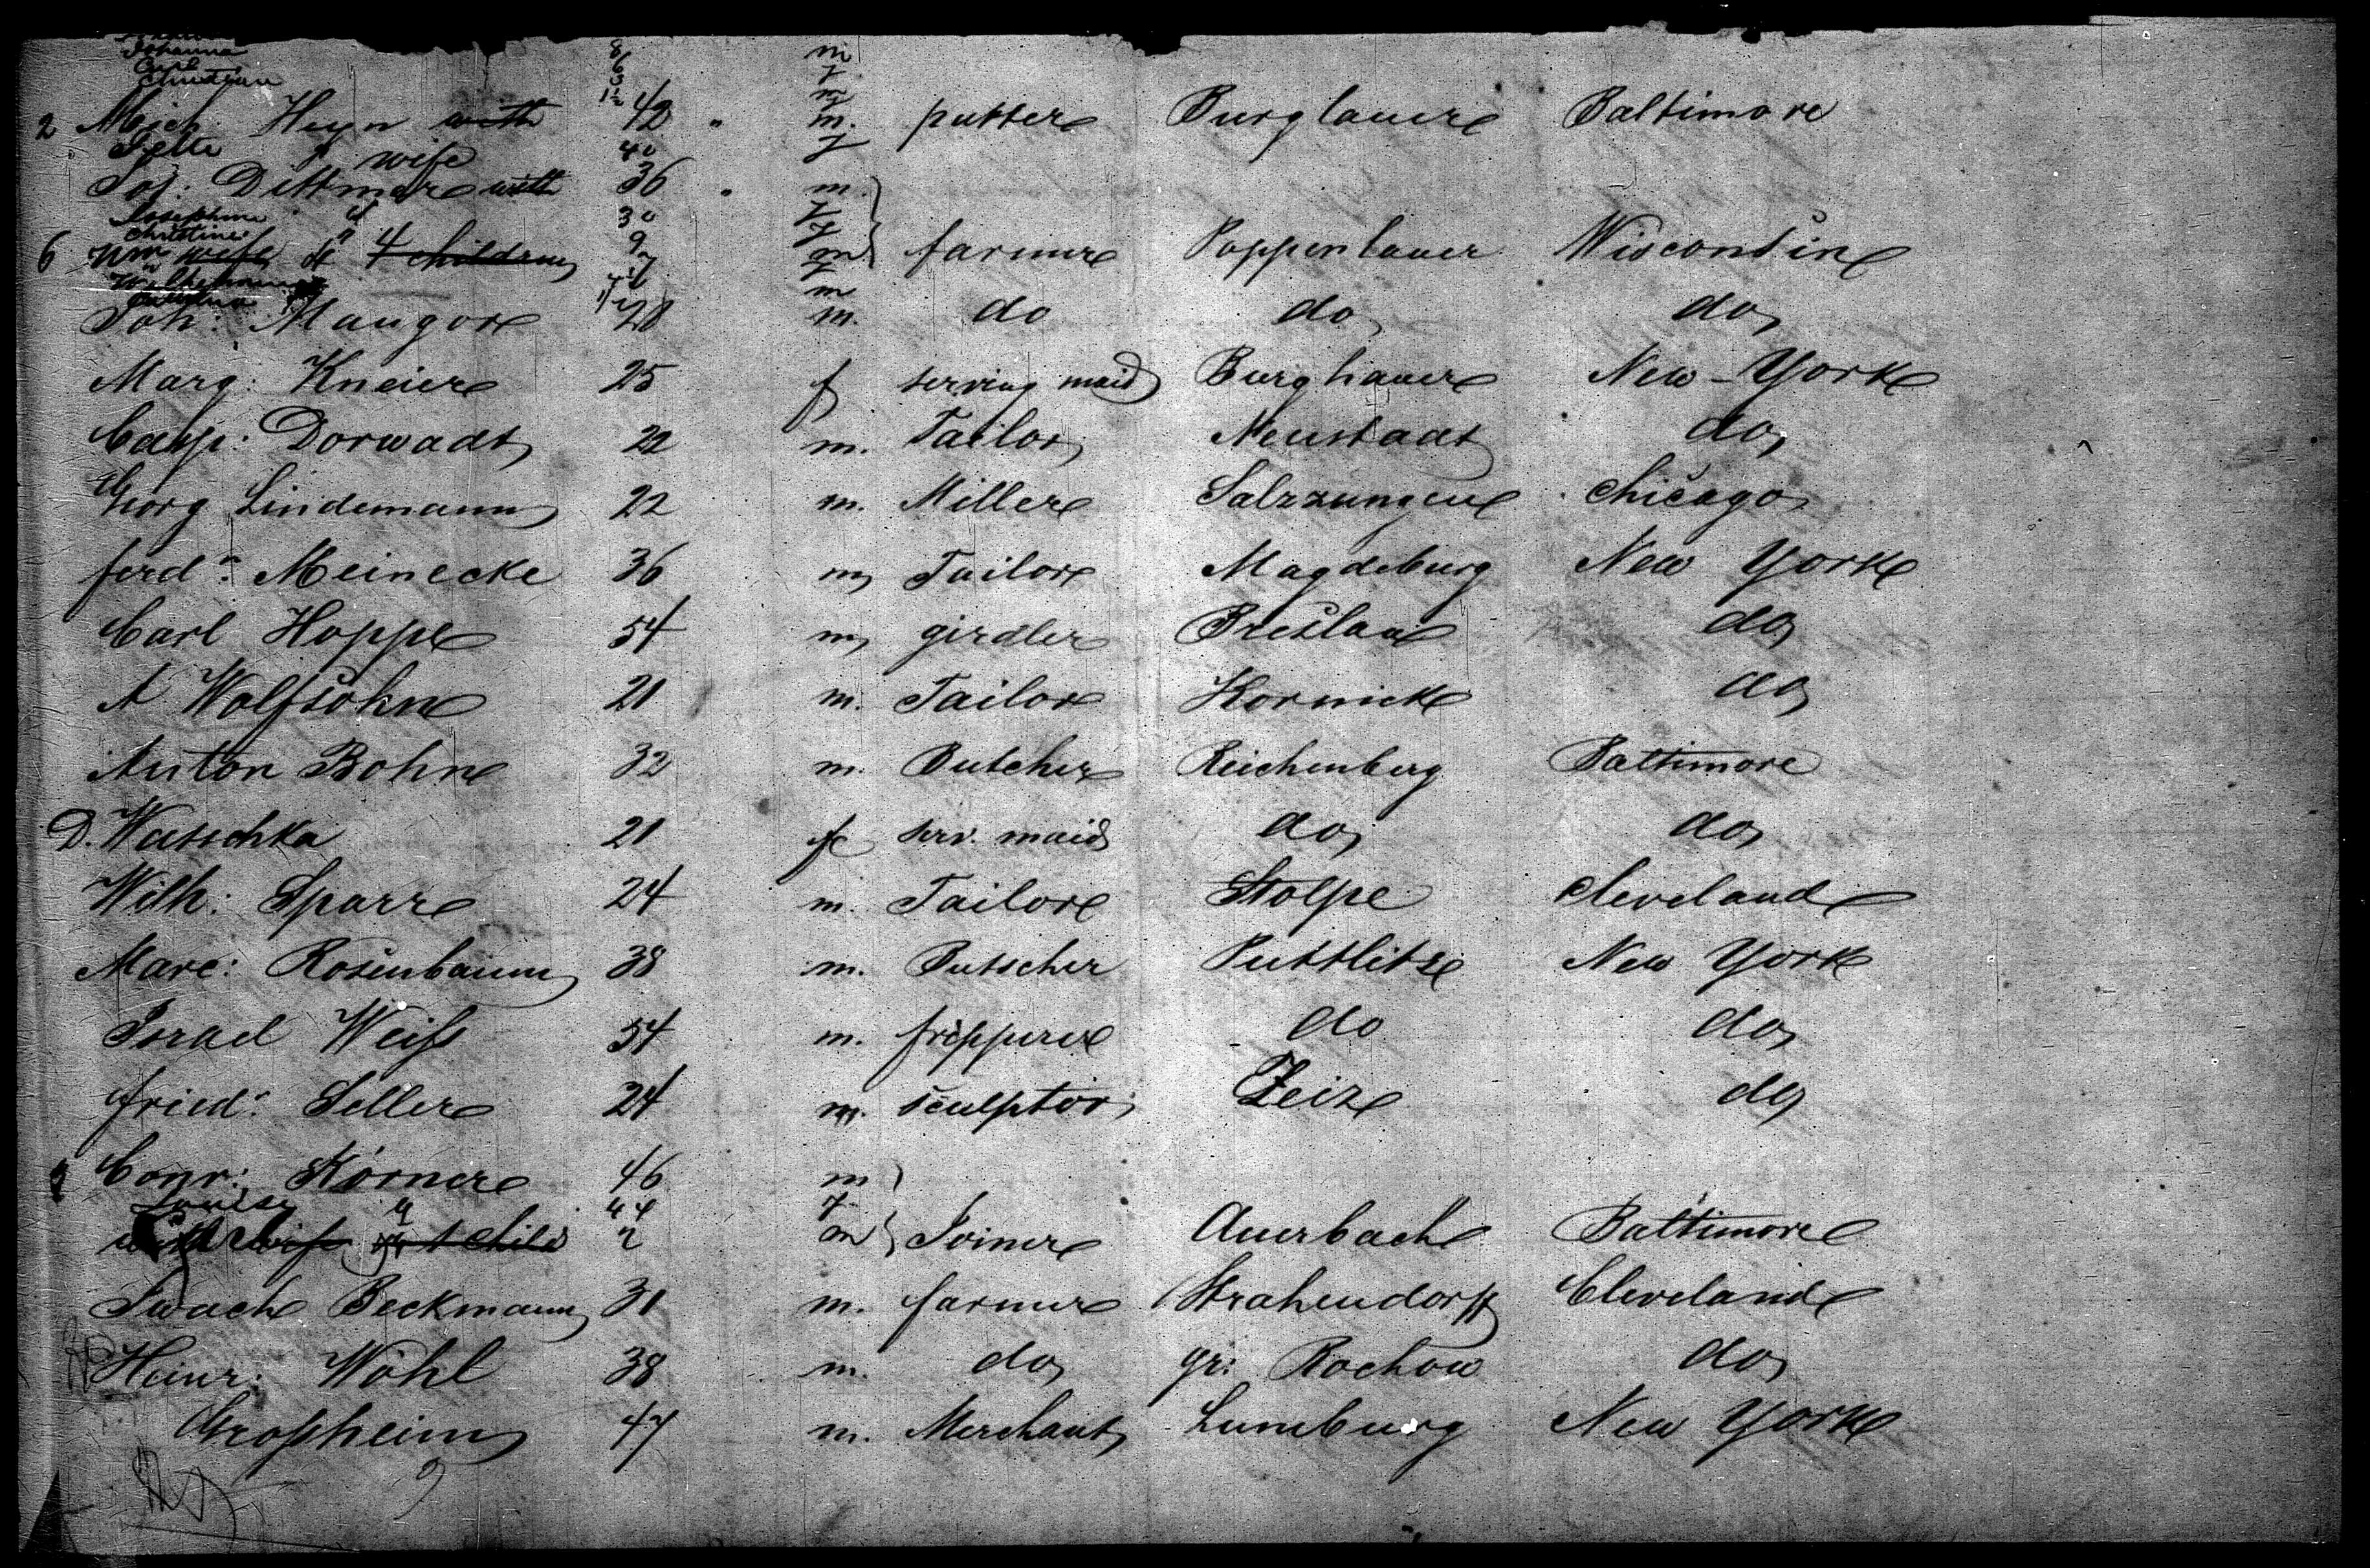 Johanna 8 m
Carl 6 f
Christian 3
1½ m
2 Mich: Heyn with 42 " m. putter Burglauer Baltimore
wife 40 f
Jos: Dittmar with 36 " m.
Josephine " 30 f
Christine " 9 f
6 wife & 4 children 7 m farmer Poppenlauer Wisconsin
Wilhelmine
Joh: Mauger 28 m. do do do
Marg: Kneier 25 f serving maid Burghauer New-York
Casp: Dorwadt 22 m. Tailor Neustadt do
Georg Lindemann 22 m. Miller Salzzungen Chicago
ferd: Meinecke 36 m Tailor Magdeburg New York
Carl Hoppe 54 m girdler Breslau do
A Wolfsohn 21 m. Tailor Kornick do
Anton Bohn 32 m. Butcher Reichenberg Baltimore
D. Watschka 21 f serv. maid do do
Wilh: Sparr 24 m. Tailor Stolpe Cleveland
Marc: Rosenbaum 38 m. Butscher Puttlitz New York
Israel Weiß 54 m. fripperer do do
fried: Seller 24 m. sculptor Zeiz do
Conr: Körner 46 m
Louise " 44 f
wife & 1 child 2 m Joiner Auerbach Baltimore
Swach Beckmann 31 m. farmer Strahendorff Cleveland
Heinr: Wöhl 38 m. do gr: Rochow do
Großheim 47 m. Merchant Luneburg New York